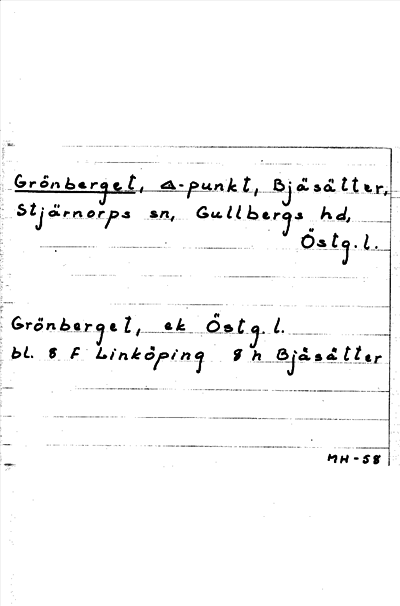 Grönberget, △-punkt, Bjäsätter,
Stjärnorps sn, Gullbergs hd,
Östg.l.
Grönberget, ek Östg.l.
bl. 8 F Linköping 8 h Bjäsätter
MH-58